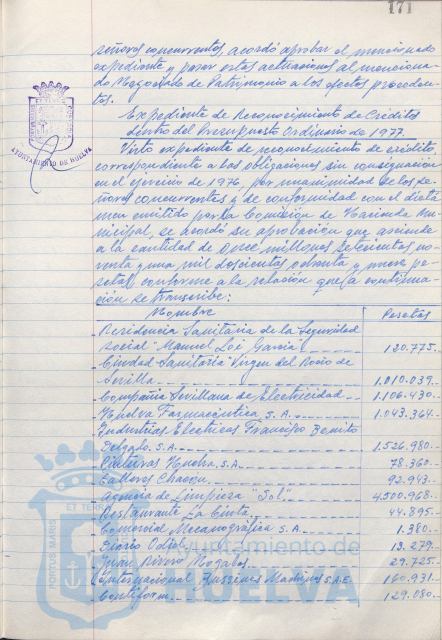 171
señores concurrentes, acordó aprobar el mencionado
expediente y pasar estas actuaciones al menciona-
do Negociado de Patrimonio a los efectos proceden-
tes.
Expediente de Reconocimiento de Créditos
dentro del Presupuesto Ordinario de 1977.
Visto expediente de reconocimiento de crédito
correspondiente a las obligaciones sin consignación
en el ejercicio de 1976, por unanimidad de los se-
ñores concurrentes y de conformidad con el dicta-
men emitido por la Comisión de Hacienda Mu-
nicipal, se acordó su aprobación que asciende
a la cantidad de once millones setecientas no-
venta y una mil doscientas ochenta y nueve pe-
setas conforme a la relación que a continua-
ción se transcribe:
Nombre Pesetas
Residencia Sanitaria de la Seguridad
Social "Manuel Loi García" 120.775.-
Ciudad Sanitaria Virgen del Rocío de
Sevilla 1.010.039.-
Compañía Sevillana de Electricidad 1.106.430.-
Huelva Farmacéutica S.A. 1.043.364.-
Industrias Electricas Francisco Benito
Delgado. S.A. 1.526.980.-
Pinturas Huelva. S.A. 78.360.-
Talleres Chacon 92.943.-
Agencia de Limpieza "Sol" 4.500.968.-
Restaurante La Cinta 44.895.-
Comercial Mecanográfica S.A. 1.380.-
Diario Odiel 13.279.-
Juan Rivero Nogales 29.725.-
Internacional Business Machines S.A.E. 160.931.-
Contiform 129.080.-
AYUNTAMIENTO DE HUELVA
PORTUS MARIS ET TERRAE
Ayuntamiento de
HUELVA